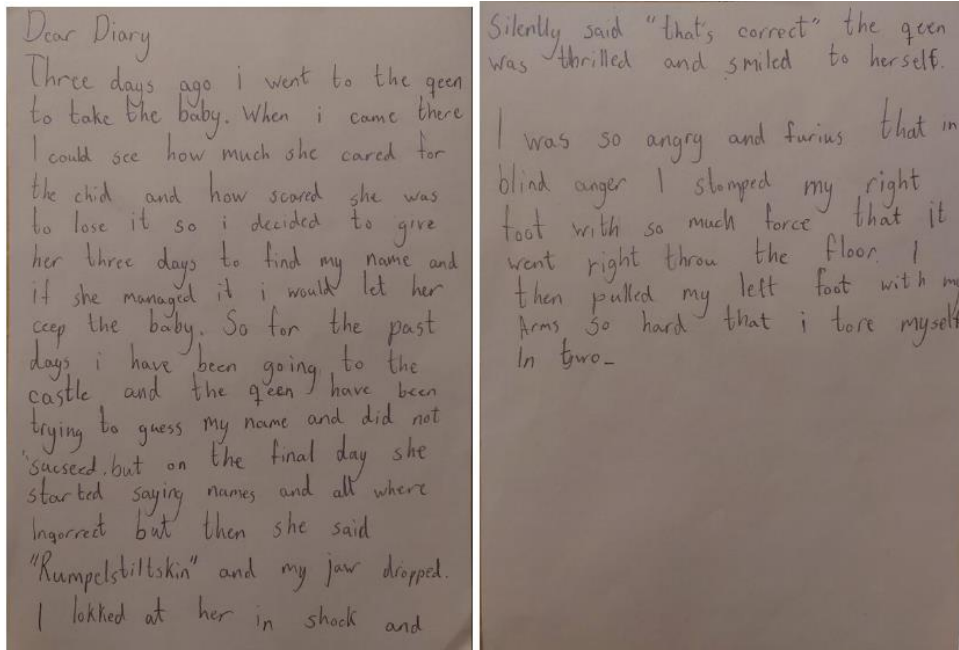 Dear Diary
Three days ago i went to the qeen
to take the baby. When i came there
I could see how much she cared for
the chid and how scared she was
to lose it so i decided to give
her three days to find my name and
if she managed it i would let her
ceep the baby. So for the past
days i have been going to the
castle and the qeen have been
trying to guess my name and did not
sucseed. but on the final day she
started saying names and all where
Ingorrect but then she said
"Rumpelstiltskin" and my jaw dropped.
I lokked at her in shock and
Silently said "that's correct" the qeen
was thrilled and smiled to herself.
I was so angry and furius that in
blind anger I stomped my right
foot with so much force that it
went right throu the floor. I
then pulled my left foot with my
Arms so hard that i tore myself
In two_